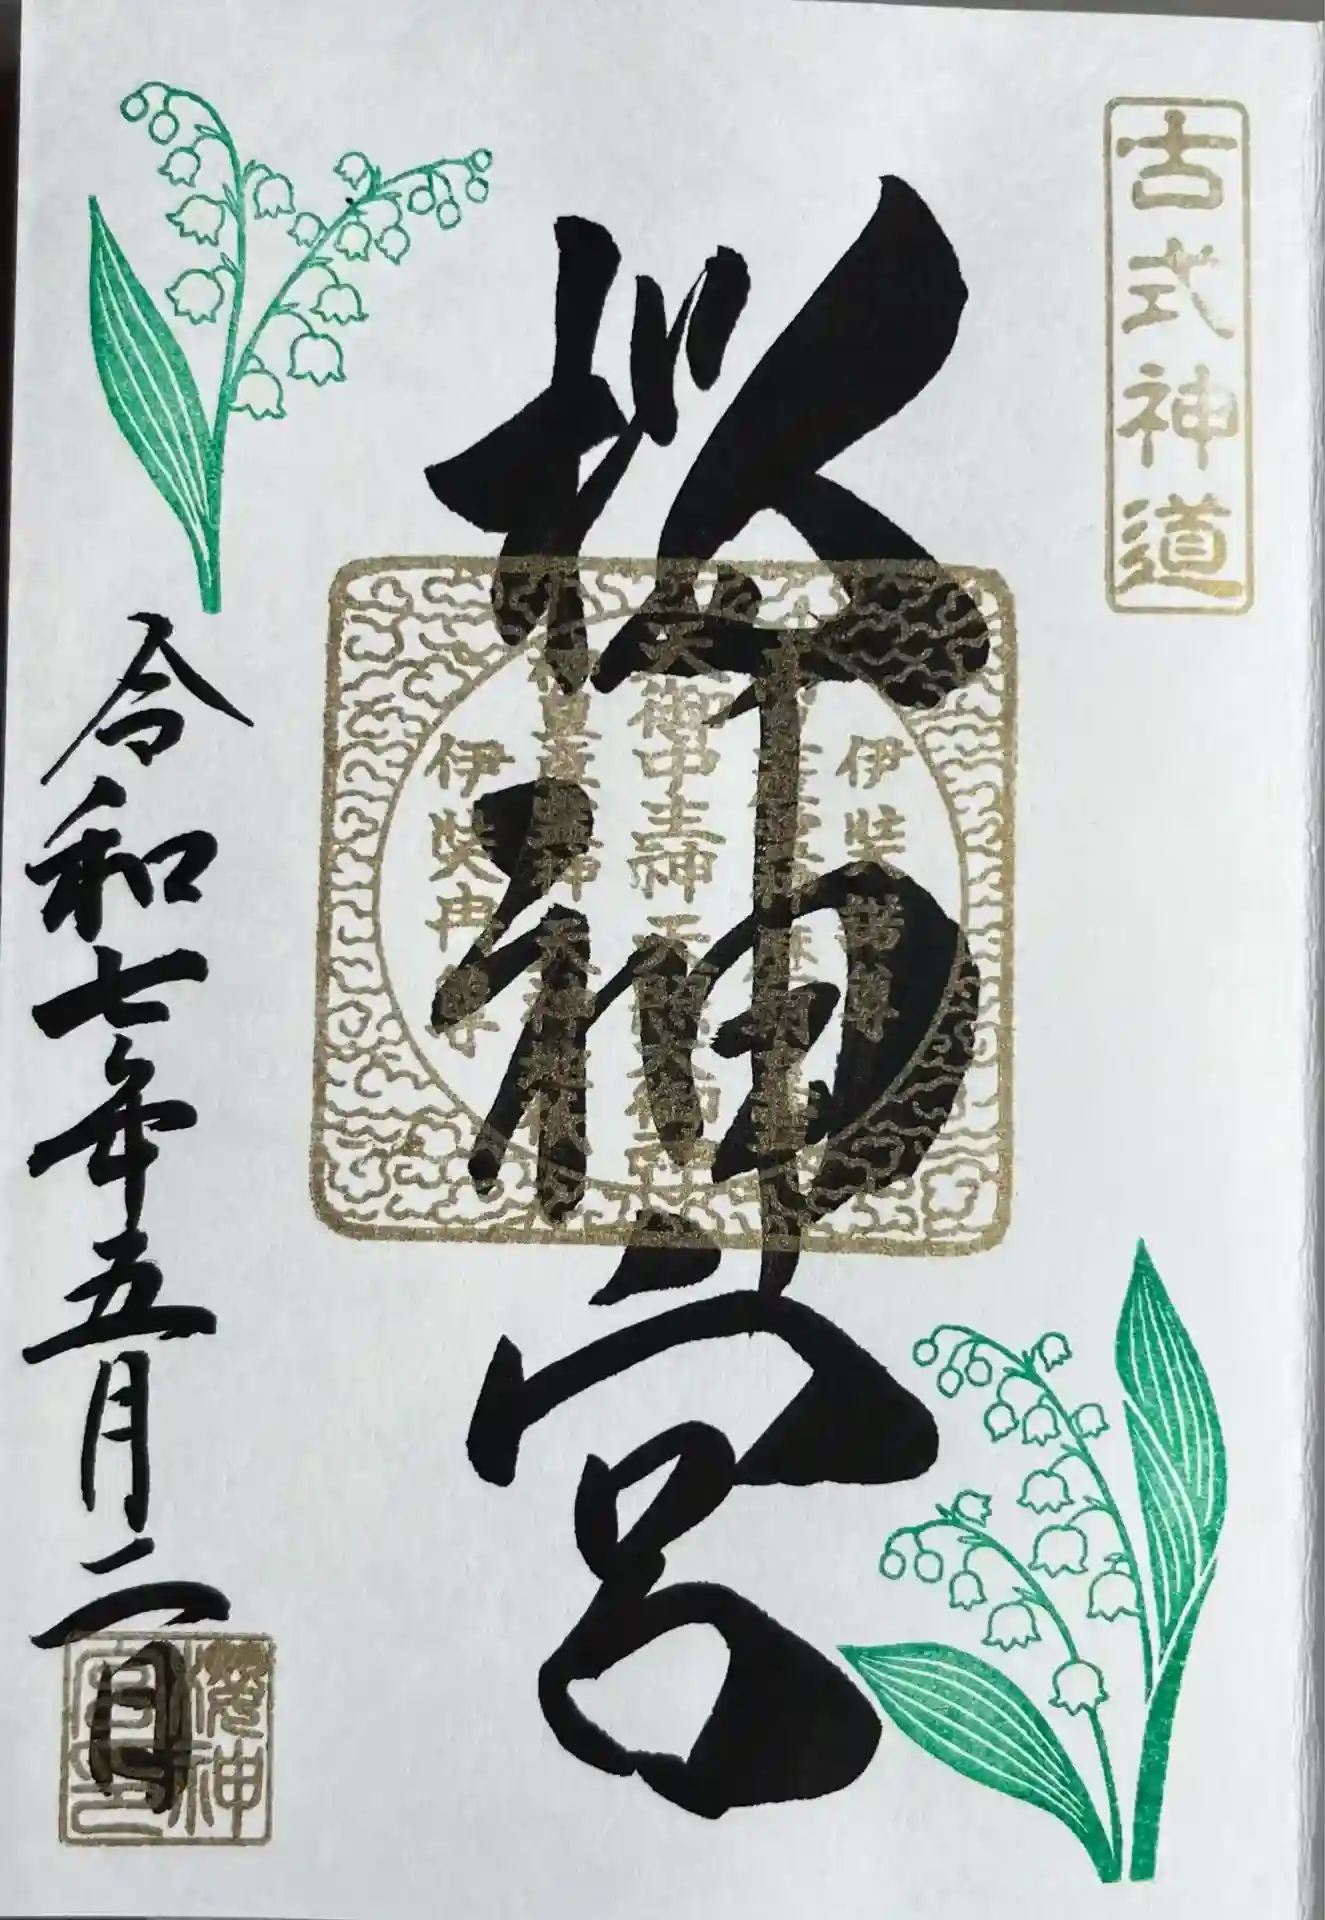 古式神道
桜神宮
伊奘諾尊
天御中主神天照大御神
伊奘冉尊
令和七年五月二日
櫻神
宮印